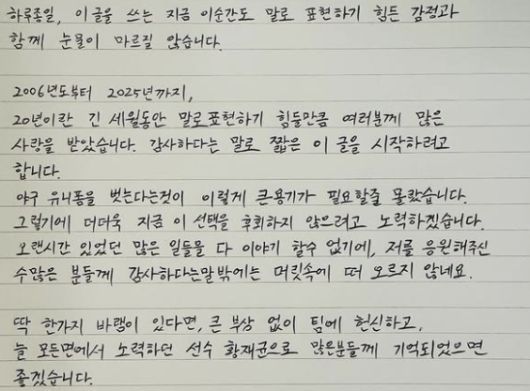 하루종일, 이 글을 쓰는 지금 이순간도 말로 표현하기 힘든 감정과
함께 눈물이 마르질 않습니다.
2006년도부터 2025년까지,
20년이란 긴 세월동안 말로표현하기 힘들만큼 여러분께 많은
사랑을 받았습니다. 감사하다는 말로 짧은 이 글을 시작하려고
합니다.
야구 유니폼을 벗는다는것이 이렇게 큰용기가 필요할줄 몰랐습니다.
그렇기에 더더욱 지금 이 선택을 후회하지 않으려고 노력하겠습니다.
오랜시간 있었던 많은 일들을 다 이야기 할수 없기에, 저를 응원해주신
수많은 분들께 감사하다는말밖에는 머릿속에 떠 오르지 않네요.
딱 한가지 바램이 있다면, 큰 부상 없이 팀에 헌신하고,
늘 모든면에서 노력하던 선수 황재균으로 많은분들께 기억되었으면
좋겠습니다.